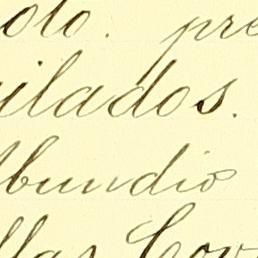 oto. pre
ilados.
Abundio
llas Cov